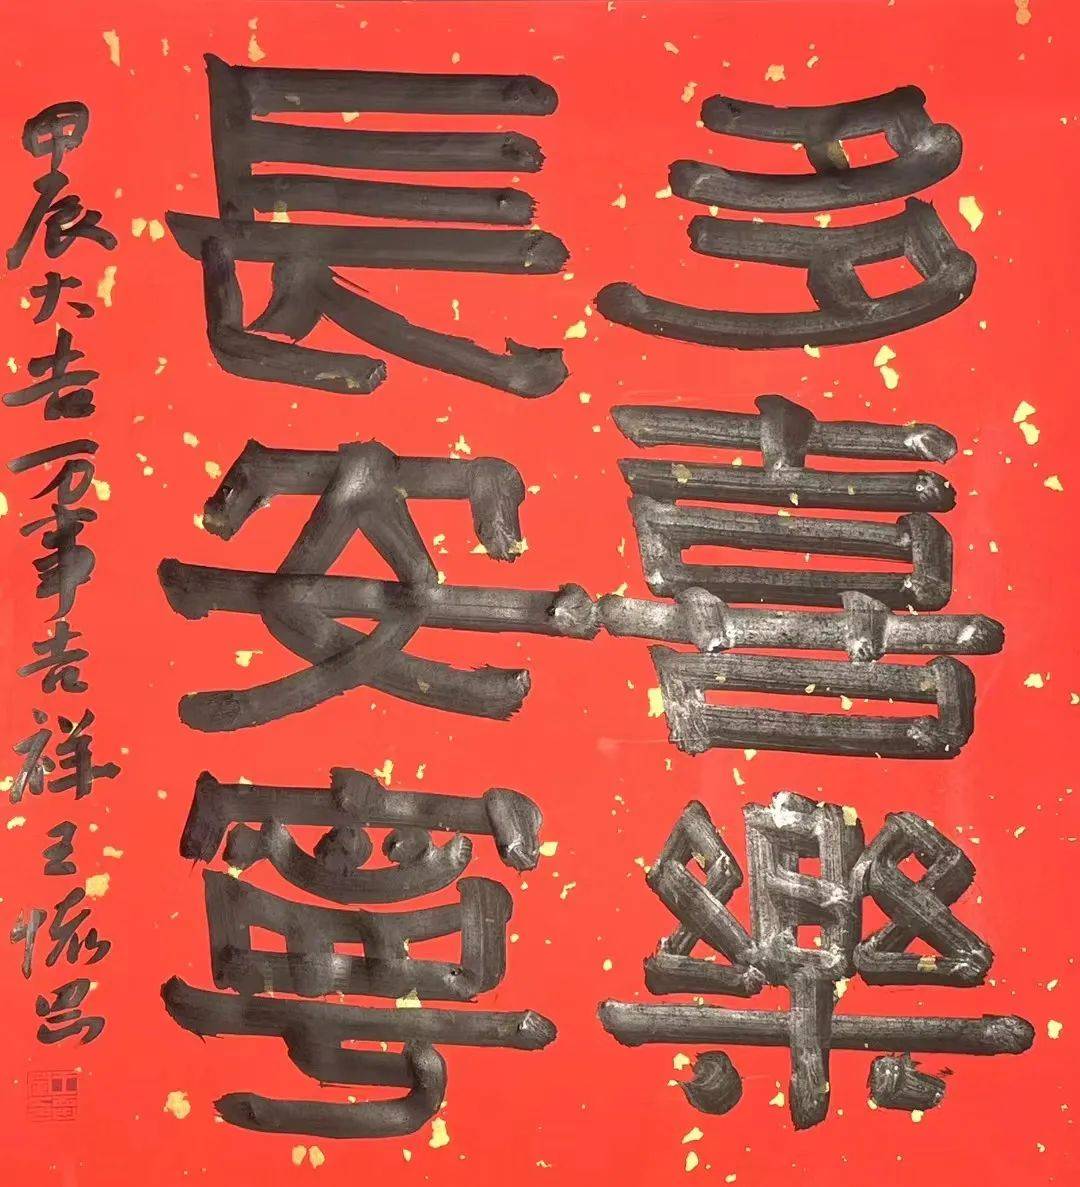 多喜樂
長安寧
甲辰大吉万事吉祥王